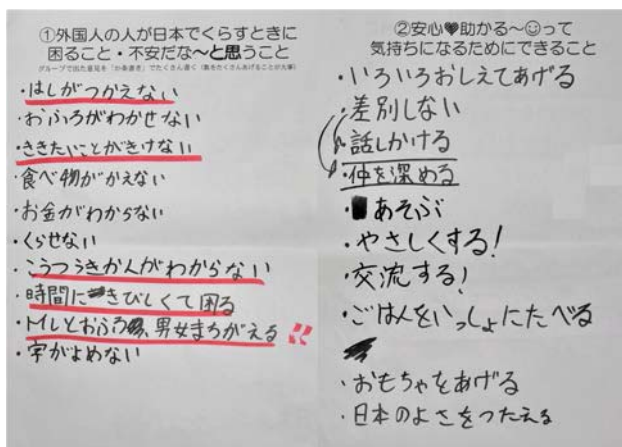 ①外国人の人が日本でくらすときに
困ること・不安だな～と思うこと
グループで出た意見を「か条書き」でたくさん書く（数をたくさんあげることが大事）
・はしがつかえない
・おふろがわかせない
・ききたいことがきけない
・食べ物がかえない
・お金がわからない
・くらせない
・こうつうきかんがわからない
・時間にきびしくて困る
・トイレとおふろ、男女まちがえる!!
・字がよめない
②安心♥助かる～☺って
気持ちになるためにできること
・いろいろおしえてあげる
・差別しない
・話しかける
・仲を深める
・あそぶ
・やさしくする!
・交流する!
・ごはんをいっしょにたべる
・おもちゃをあげる
・日本のよさをつたえる